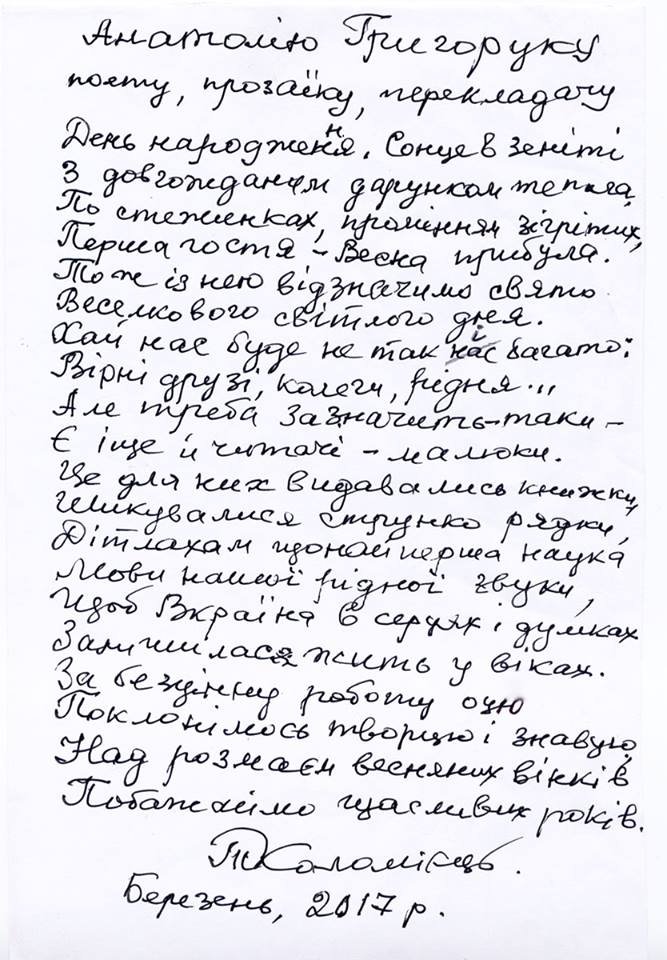 Анатолію Григоруку
поету, прозаїку, перекладачу
День народження. Сонце в зеніті
З довгожданим дарунком тепла,
По стежинках, промінням зігрітих,
Перша гостя – Весна прибула.
Тож із нею відзначимо свято
Веселкового світлого дня.
Хай нас буде не так і багато:
Вірні друзі, колеги, рідня...
Але треба зазначить-таки –
Є іще й читачі – малюки.
Це для них видавались книжки,
Шикувалися струнко рядки,
Дітлахам щонайперша наука
Мови нашої рідної звуки,
Щоб Вкраїна в серцях і думках
Залишилася жить у віках.
За безцінну роботу оцю
Поклонімось творцю і знавцю,
Над розмаєм весняних вінків
Побажаймо щасливих років.
Т Коломієць.
Березень, 2017 р.